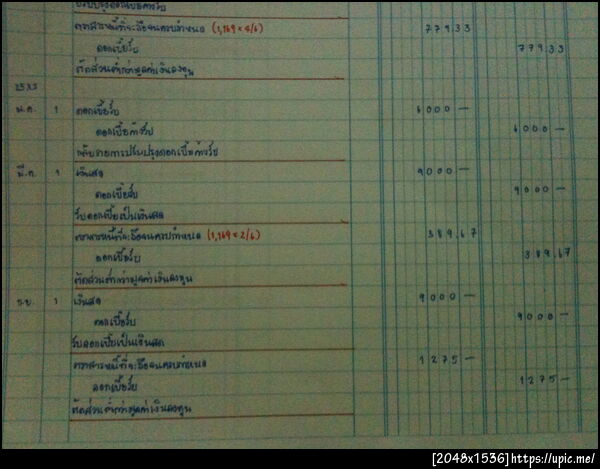 ตราสารหนี้ที่จะถือจนครบกำหนด (1,169 × 4/6) 779.33
ดอกเบี้ยรับ 779.33
ตัดส่วนต่ำกว่ามูลค่าเงินลงทุน
ม.ค. 1 ดอกเบี้ยรับ 6000 —
ดอกเบี้ยค้างรับ 6000 —
กลับรายการปรับปรุงดอกเบี้ยค้างรับ
มี.ค. 1 เงินสด 9000 —
ดอกเบี้ยรับ 9000 —
รับดอกเบี้ยเป็นเงินสด
ตราสารหนี้ที่จะถือจนครบกำหนด (1,169 × 2/6) 389.67
ดอกเบี้ยรับ 389.67
ตัดส่วนต่ำกว่ามูลค่าเงินลงทุน
ก.ย. 1 เงินสด 9000 —
ดอกเบี้ยรับ 9000 —
รับดอกเบี้ยเป็นเงินสด
ตราสารหนี้ที่จะถือจนครบกำหนด 1275 —
ดอกเบี้ยรับ 1275 —
ตัดส่วนต่ำกว่ามูลค่าเงินลงทุน
[2048x1536]https://upic.me/